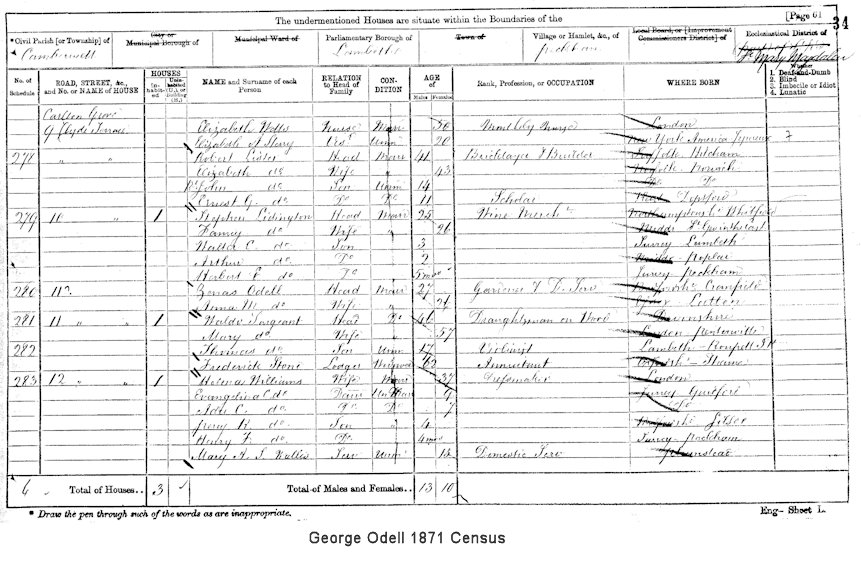 The undermentioned Houses are situate within the Boundaries of the
[Page 61
34
*Civil Parish [or Township] of
City or Municipal Borough of
Municipal Ward of
Parliamentary Borough of
Town of
Village or Hamlet, &c., of
Local Board, or [Improvement Commissioners District] of
Ecclesiastical District of
Camberwell
Lambeth
Peckham
St Mary Magdalen
No. of Schedule
ROAD, STREET, &c., and No. or NAME of HOUSE
HOUSES
Inhabited
Uninhabited (U.), or Building (B.)
NAME and Surname of each Person
RELATION to Head of Family
CONDITION
AGE of
Males
Females
Rank, Profession, or OCCUPATION
WHERE BORN
Whether
1. Deaf-and-Dumb
2. Blind
3. Imbecile or Idiot
4. Lunatic
Carlton Grove
9 Clyde Terrace Elizabeth Nurse Marr 50 Monthly Nurse London
Elizabeth A Unm 20 New York America
278 " " Robert Lister Head Marr 41 Bricklayer & Builder Suffolk
Elizabeth do Wife " 43 Norfolk Norwich
John do Son Unm 14 Do Do
Ernest G. do Do Do 11 Scholar Kent Deptford
279 10 " 1 Stephen Lidington Head Marr 25 Wine Merch
Fanny do Wife " 26 Middx
Walter C. do Son 3 Surrey Lambeth
Arthur do Do 2 Middx Poplar
Herbert F do Do 5 mos Surrey Peckham
280 Zenas Odell Head Marr 27 Cranfield
Anna M. do Wife " Luton
281 11 " " 1 Waldo Sargeant Head Do 46 Draughtsman on Wood Devonshire
Mary do Wife " 57 London
282 Thomas do Son Unm 17 Violinist Lambeth
Frederick Stone Lodger Accountant
283 12 " " 1 Helena Williams Wife Marr 37 Dressmaker London
Evangeline C do 9 Surrey Guildford
Ada C. do Do Do 7 Do
Percy R. do Son 4
Henry F. do Do 4 mos Surrey Peckham
Mary A. J. Wallis Serv Unm 14 Domestic Serv Plumstead
4 Total of Houses.. 3
Total of Males and Females.. 13 10
* Draw the pen through such of the words as are inappropriate.
Eng- Sheet L.
George Odell 1871 Census